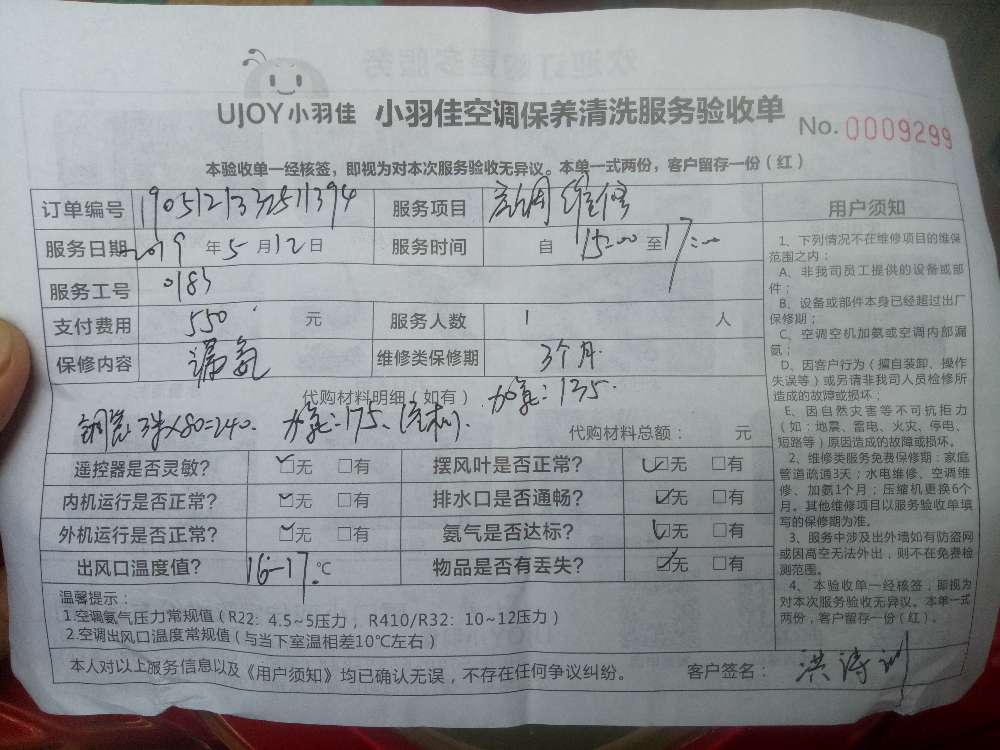 UJOY小羽佳 小羽佳空调保养清洗服务验收单 No. 0009299
本验收单一经核签，即视为对本次服务验收无异议。本单一式两份，客户留存一份（红）
订单编号 服务项目 空调维修
服务日期 2019 年 5 月 12 日 服务时间 自 15:00 至 17:00
服务工号 0185
支付费用 550 元 服务人数 1 人
保修内容 漏氨 维修类保修期 3个月
代购材料明细（如有） 加氨：135.
3米×80=240. 175. 代购材料总额： 元
遥控器是否灵敏? ☑无 □有 摆风叶是否正常? ☑无 □有
内机运行是否正常? ☑无 □有 排水口是否通畅? ☑无 □有
外机运行是否正常? ☑无 □有 氨气是否达标? ☑无 □有
出风口温度值? 16-17 ℃ 物品是否有丢失? ☑无 □有
温馨提示：
1.空调氨气压力常规值（R22: 4.5~5压力， R410/R32: 10~12压力）
2.空调出风口温度常规值（与当下室温相差10℃左右）
本人对以上服务信息以及《用户须知》均已确认无误，不存在任何争议纠纷。 客户签名：
用户须知
1、下列情况不在维修项目的维保
范围之内：
A、非我司员工提供的设备或部
件；
B、设备或部件本身已经超过出厂
保修期；
C、空调空机加氨或空调内部漏
氨；
D、因客户行为（擅自装卸、操作
失误等）或另请非我司人员检修所
造成的故障或损坏；
E、因自然灾害等不可抗拒力
（如：地震、雷电、火灾、停电、
短路等）原因造成的故障或损坏。
2、维修类服务免费保修期：家庭
管道疏通3天；水电维修、空调维
修、加氨1个月；压缩机更换6个
月。其他维修项目以服务验收单填
写的保修期为准。
3、服务中涉及出外墙如有防盗网
或因高空无法外出，则不在免费检
测范围。
4、本验收单一经核签，即视为
对本次服务验收无异议。本单一式
两份，客户留存一份（红）。